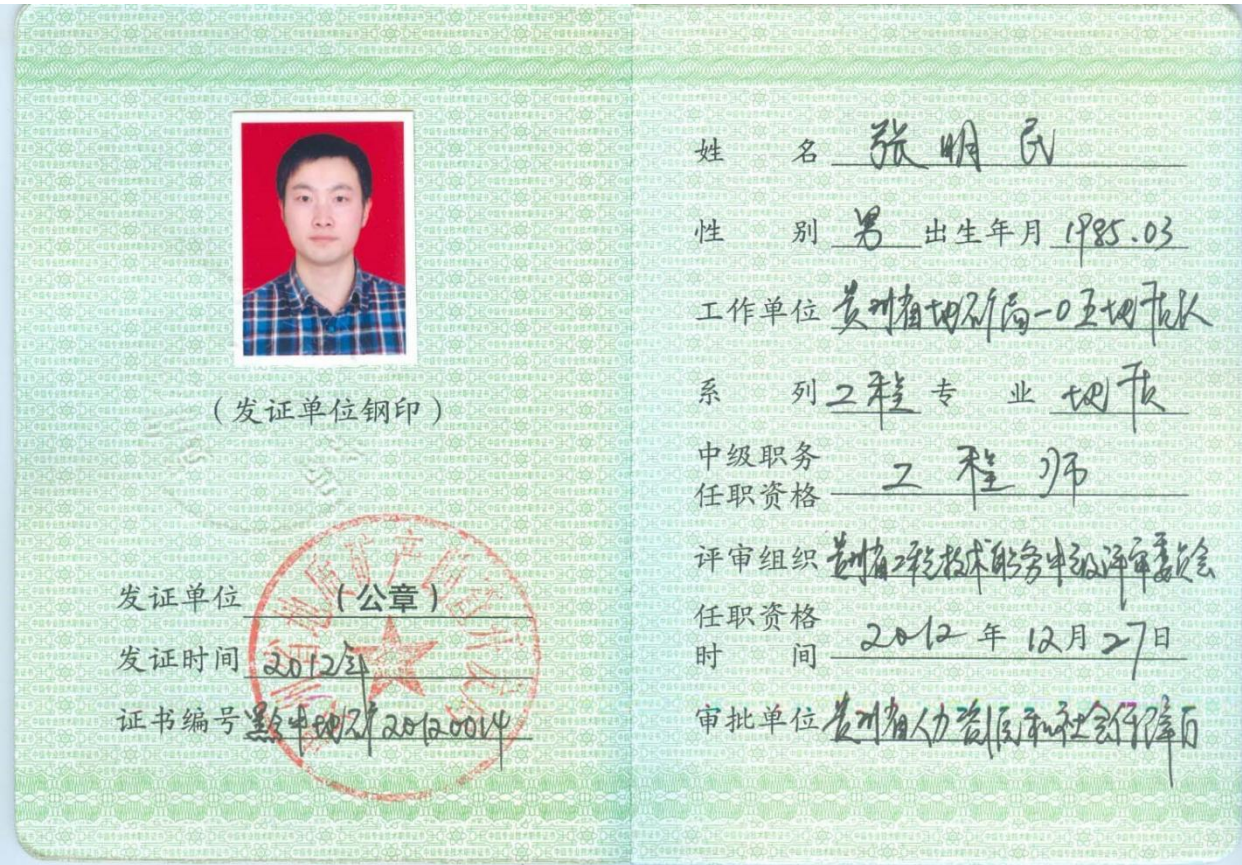 （发证单位钢印）
发证单位（公章）
发证时间 2012年
证书编号 黔中地矿20120014
贵州省地质矿产局
姓名 张明民
性别 男 出生年月 1985.03
工作单位 贵州省地矿局一0五地质队
系列 工程 专业 地质
中级职务
任职资格 工程师
评审组织 贵州省工程技术职务中级评审委员会
任职资格
时间 2012年12月27日
审批单位 贵州省人力资源和社会保障厅